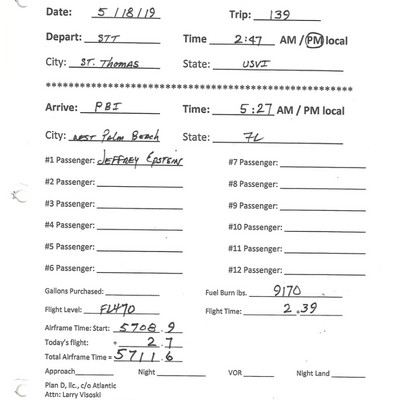 Date: 5/18/19 Trip: 139
Depart: STT Time 2:47 AM / PM local
City: ST. THOMAS State: USVI
**************************************************
Arrive: PBI Time: 5:27 AM / PM local
City: WEST PALM BEACH State: FL
#1 Passenger: JEFFREY EPSTEIN #7 Passenger:
#2 Passenger: #8 Passenger:
#3 Passenger: #9 Passenger:
#4 Passenger: #10 Passenger:
#5 Passenger: #11 Passenger:
#6 Passenger: #12 Passenger:
Gallons Purchased: Fuel Burn lbs. 9170
Flight Level: FL470 Flight Time: 2.39
Airframe Time: Start: 5708.9
Today's flight: + 2.7
Total Airframe Time = 5711.6
Approach Night VOR Night Land
Plan D, llc., c/o Atlantic
Attn: Larry Visoski